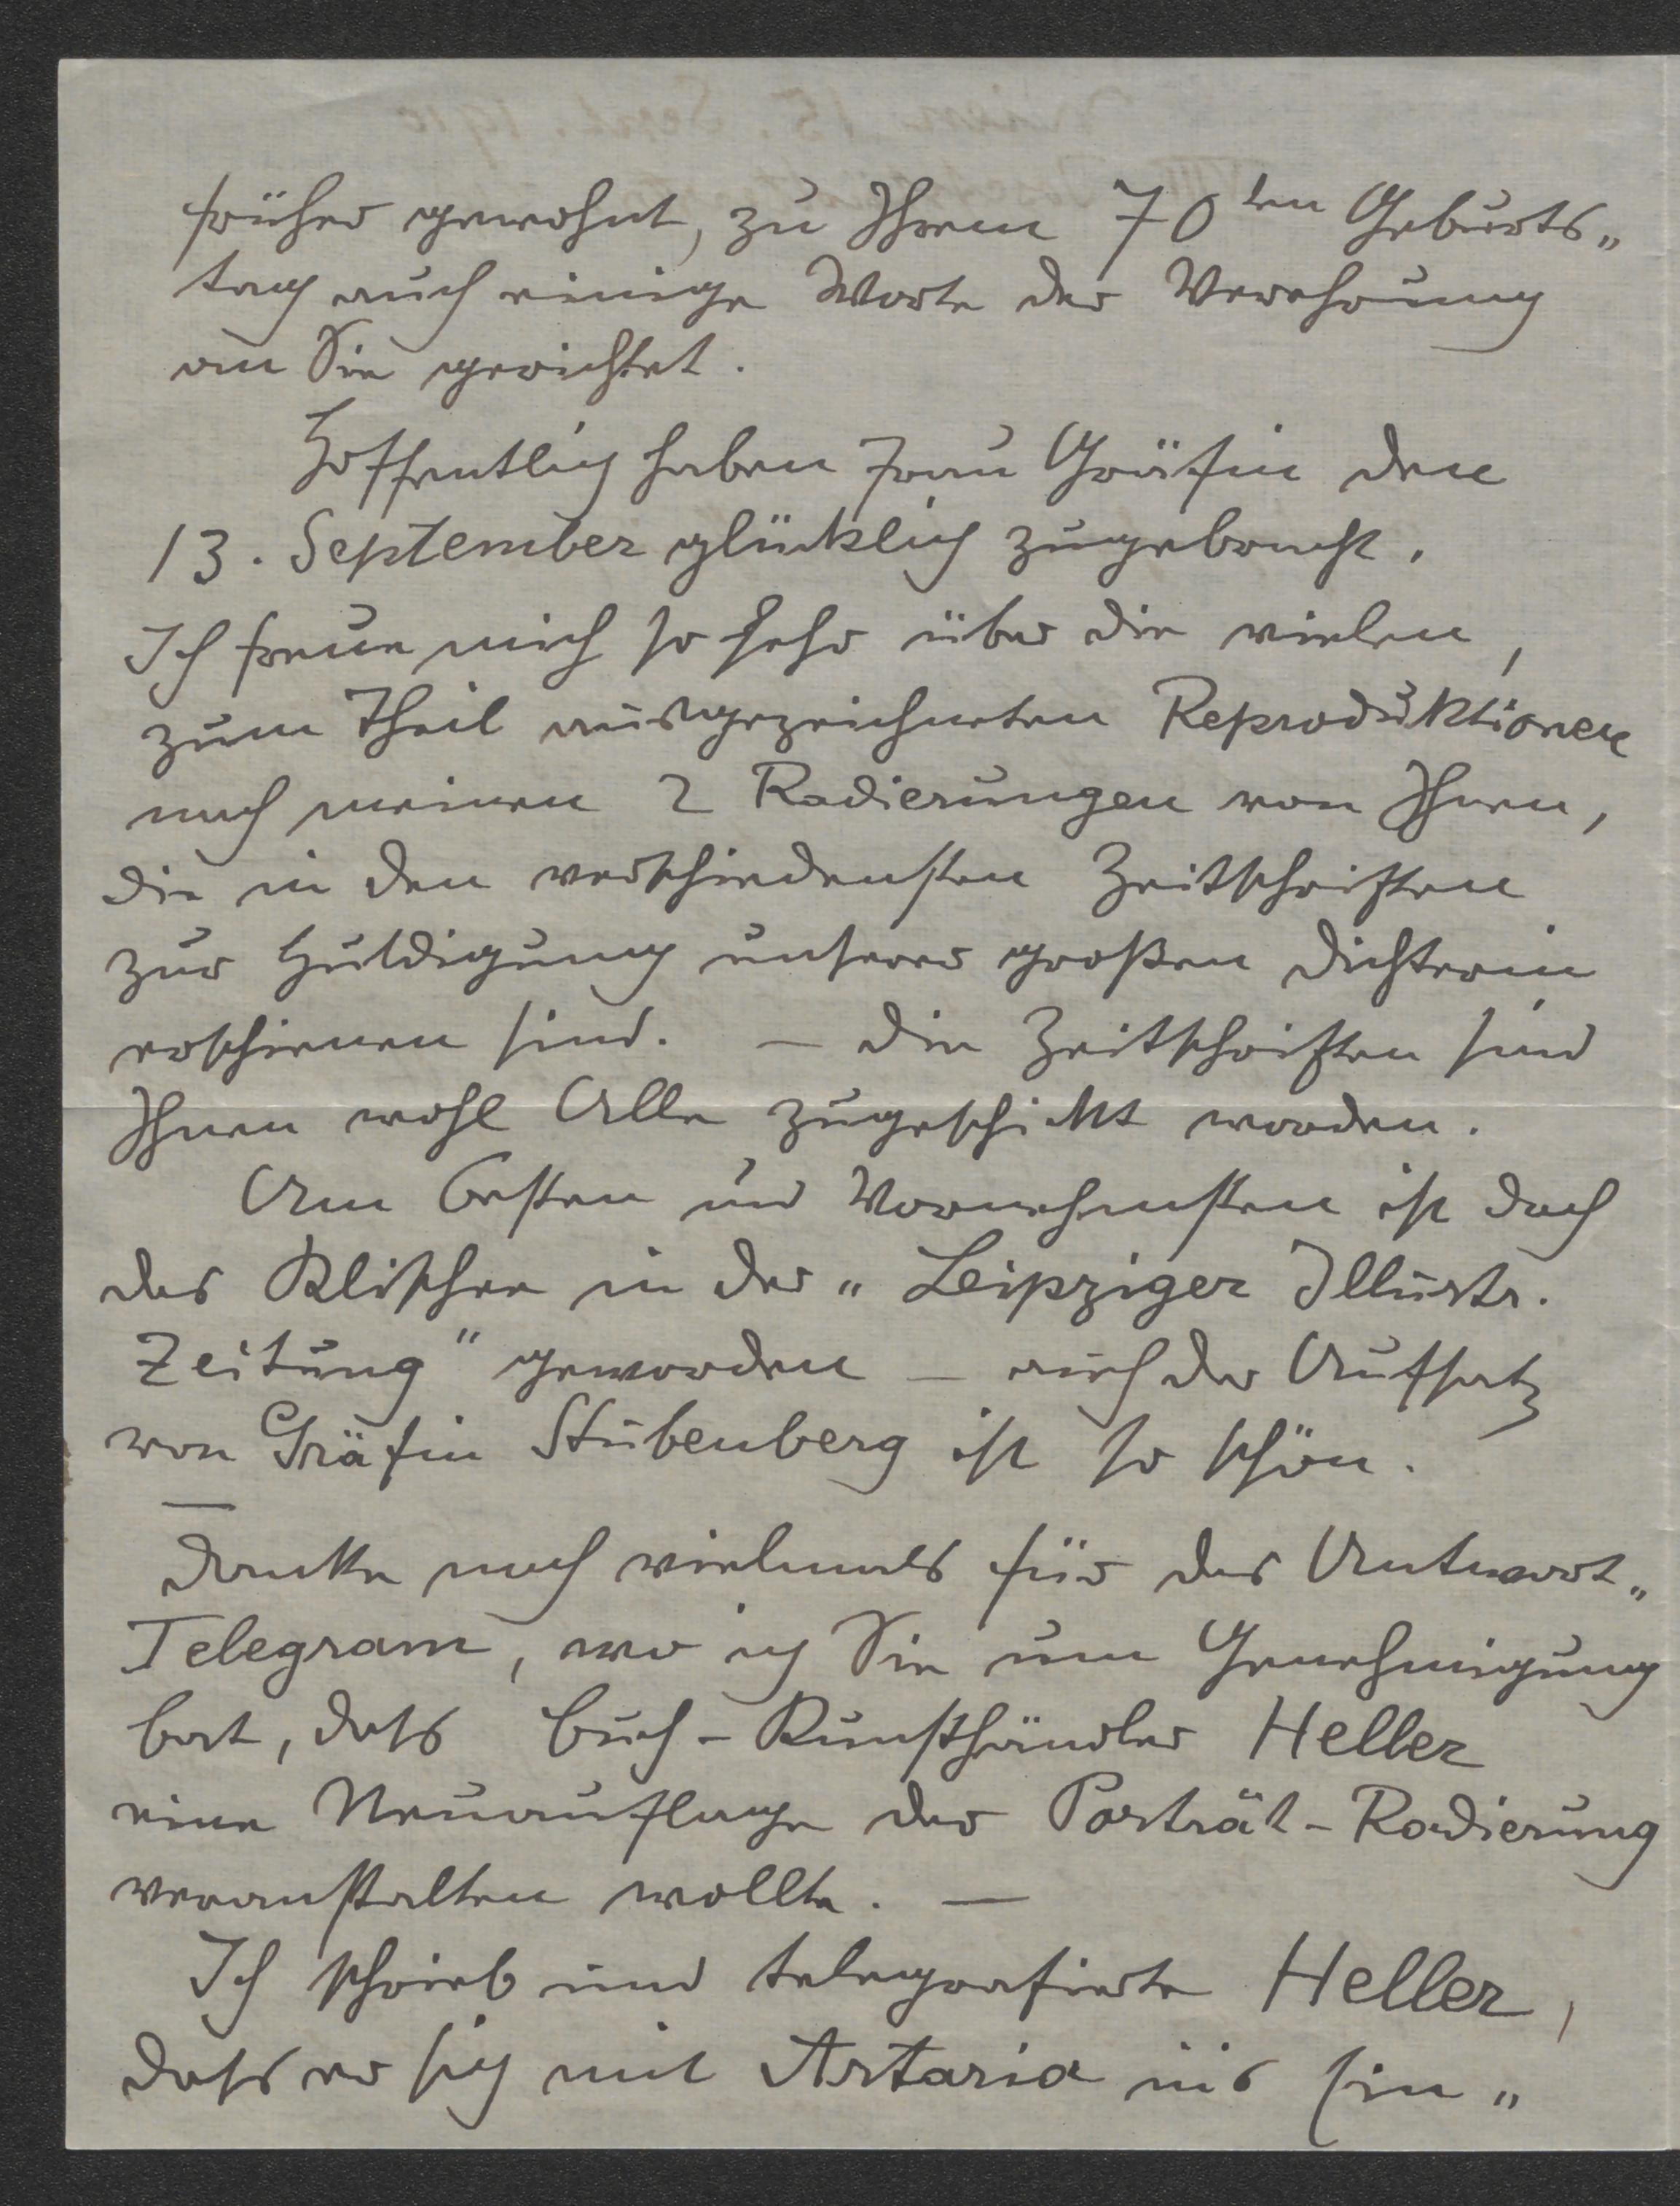 früher gewohnt, zu Ihrem 70ten Geburts„
tag auch einige Worte der Verehrung
an Sie gerichtet.
Hoffentlich haben Frau Gräfin den
13. September glücklich zugebracht.
Ich freue mich so sehr über die vielen,
zum Theil ausgezeichneten Reproduktionen
nach meinen 2 Radierungen von Ihnen,
die in den verschiedensten Zeitschriften
zur Huldigung unserer großen Dichterin
erschienen sind. — Die Zeitschriften sind
Ihnen wohl Alle zugeschickt worden.
Am Besten und Vornehmsten ist doch
das Klischee in der „Leipziger Illustr.
Zeitung" geworden — auch der Aufsatz
von Gräfin Stubenberg ist so schön.
—
Danke noch vielmals für das Antwort„
Telegram, wo ich Sie um Genehmigung
bat, dass Buch-Kunsthändler Heller
eine Neuauflage der Porträt-Radierung
veranstalten wollte. —
Ich schrieb und telegrafierte Heller,
dass er sich mit Artaria